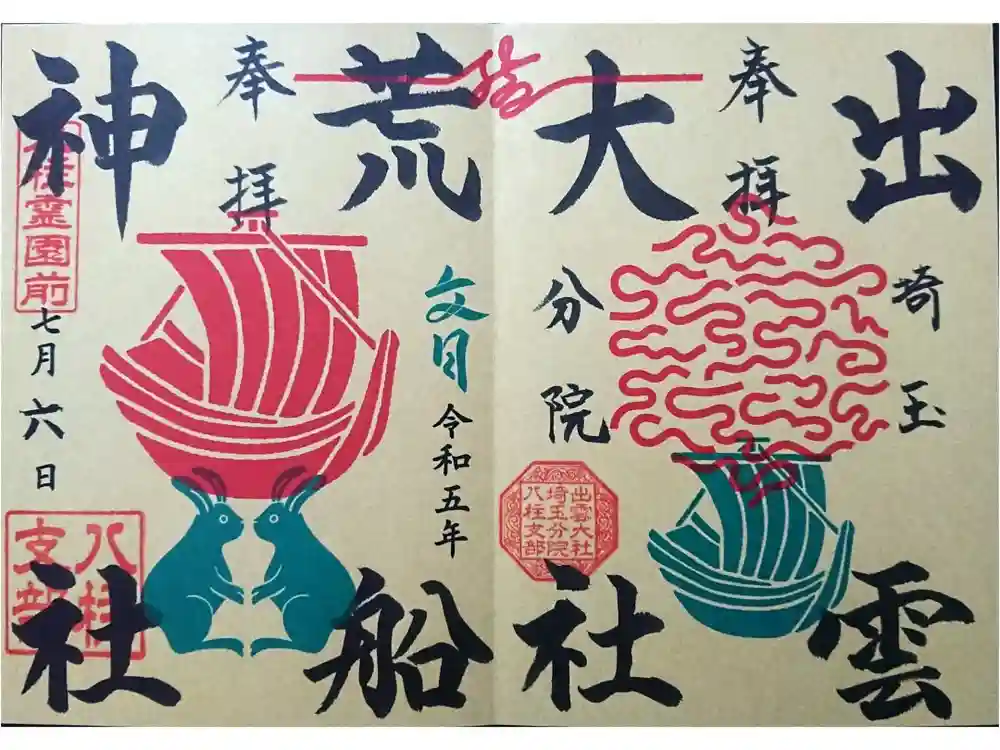 出雲
奉拝
埼玉
大社
分院
出雲大社
埼玉分院
八柱支部
荒船
文月
令和五年
奉拝
神社
霊園前
七月六日
八柱
支部